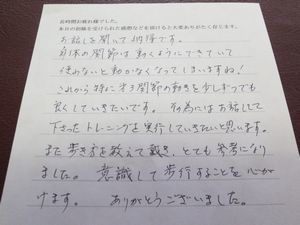 長時間お疲れ様でした。
本日の施術を受けられた感想などを頂けると大変ありがたく存じます。
お話しを聞いて納得です。
身体の関節は動くようにできていて
使わないと動かなくなってしまいますね！
これから特に 関節の動きを少しずつでも
良くしていきたいです。 為にはお話しして
下さったトレーニングを実行していきたいと思います。
また歩き方を教えて戴き、とても参考になり
ました。意識して歩行することを心が
けます。 ありがとうございました。